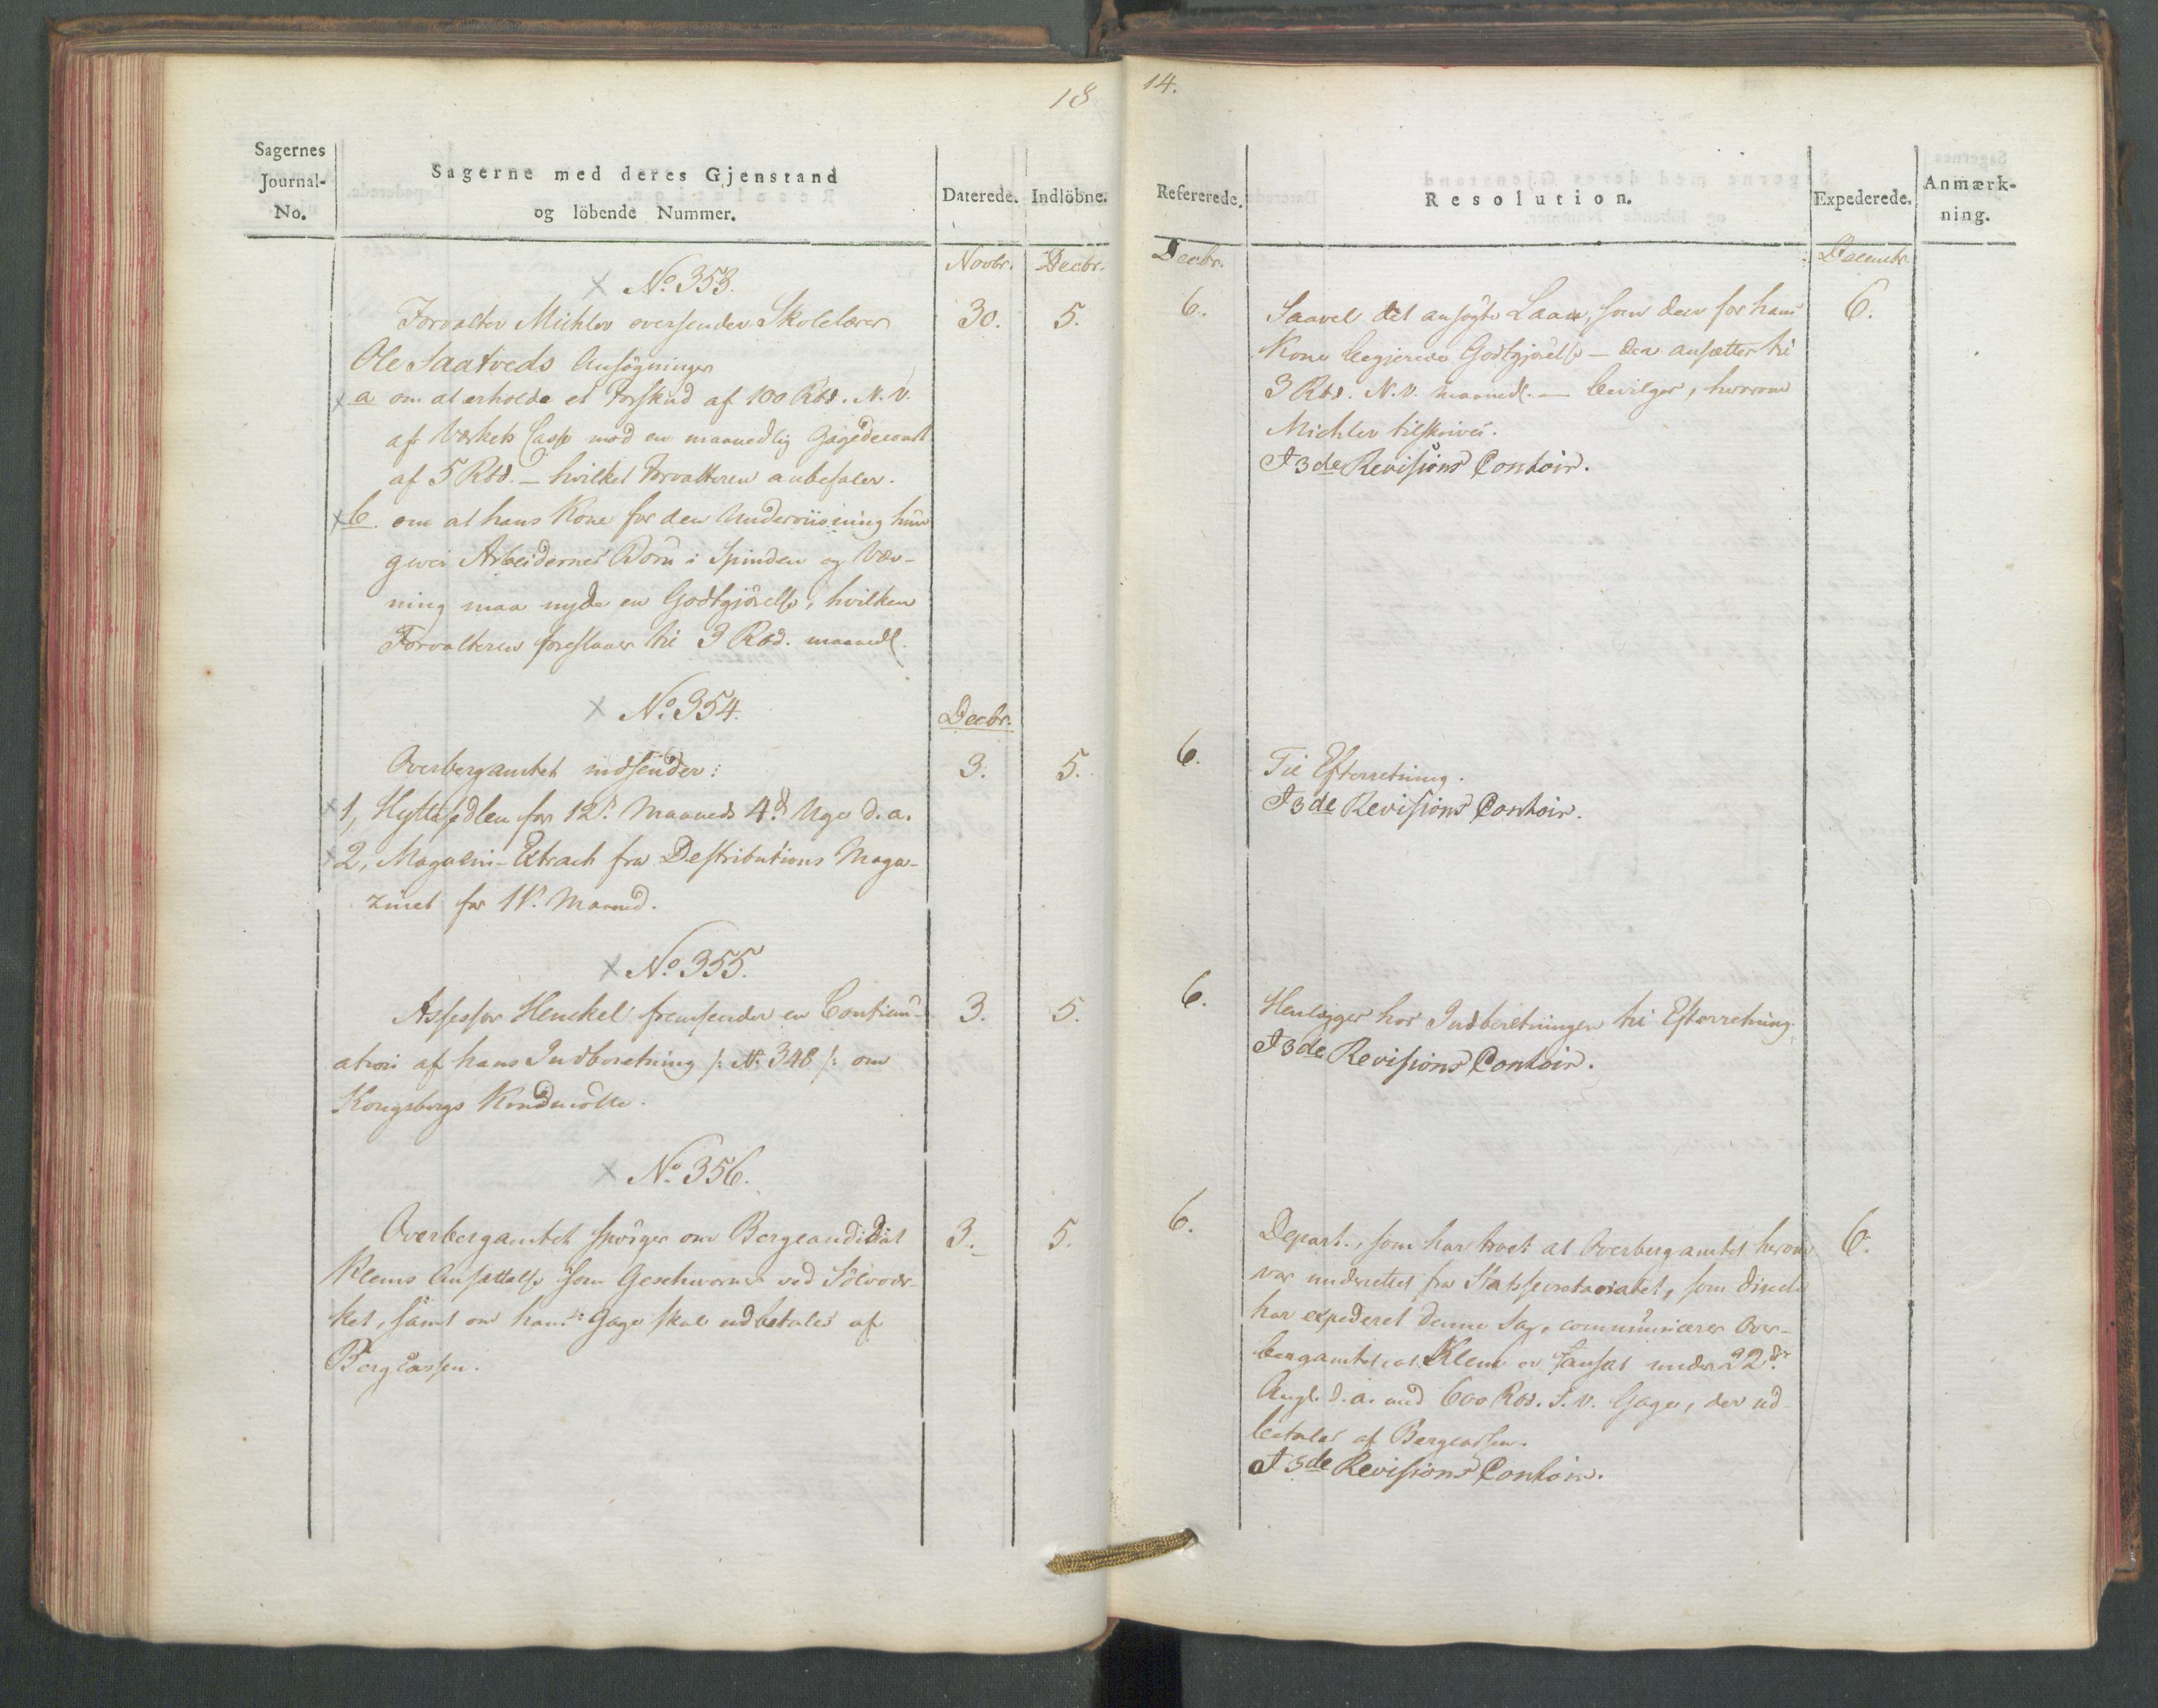 18
Sagernes
Journal-
No.
Sagerne med deres Gjenstand
og löbende Nummer.
Daterede.
Indlöbne.
Novbr.
Decbr.
No. 353.
Forvalter Michler oversender Skolelærer
30.
5.
Ole Saatveds Ansögninger
a om at erholde et Forskud af 100 Rbd. N. V.
af Værkets Casse mod en maanedlig Gagedecourt
af 5 Rbd. – hvilket Forvalteren anbefaler.
b. om at hans Kone for den Underviisning hun
giver Arbeidernes Börn i Spinden og Væv-
ning maa nyde en Godtgjörelse, hvilken
Forvalteren foreslaaer til 3 Rbd. maanedl.
No. 354.
Decbr.
Overbergamtet indsender:
3.
5.
1, Hyttesedlen for 12t. Maaneds 4d. Uge d. a.
2, Magazin-Extract fra Destributions Maga-
zinet for 11t. Maaned.
No. 355.
Assessor Henckel fremsender en Continu-
3.
5.
ation af hans Indberetning /: No. 348 :/ om
Kongsbergs Krudmölle.
No. 356.
Overbergamtet spörger om Bergcandidat
3.
5.
Klems Ansættelse som Geschworner ved Sölvvær-
ket, samt om hans Gage skal udbetales af
Bergcassen.
14.
Refererede.
Resolution.
Expederede.
Anmærk-
ning.
Decbr.
Decembr.
6.
Saavel det ansögte Laan, som den for hans
6.
Kone begjerede Godtgjörelse – der ansættes til
3 Rbd. N. V. maanedl. – bevilges, hvorom
Michler tilskrives.
I 3de Revisions Contoir.
6.
Til Efterretning.
I 3de Revisions Contoir.
6.
Henlægger hos Indberetningen til Efterretning.
I 3de Revisions Contoir.
6.
Depart., som har troet at Overbergamtet herom
6.
var underrettet fra Statssecretariatet, som directe
har expederet denne Sag, communicerer Over-
bergamtet at Klem er ansat under 22de
Aug. d. a. med 600 Rbd. S. V. Gage, der ud-
betales af Bergcassen.
I 3de Revisions Contoir.